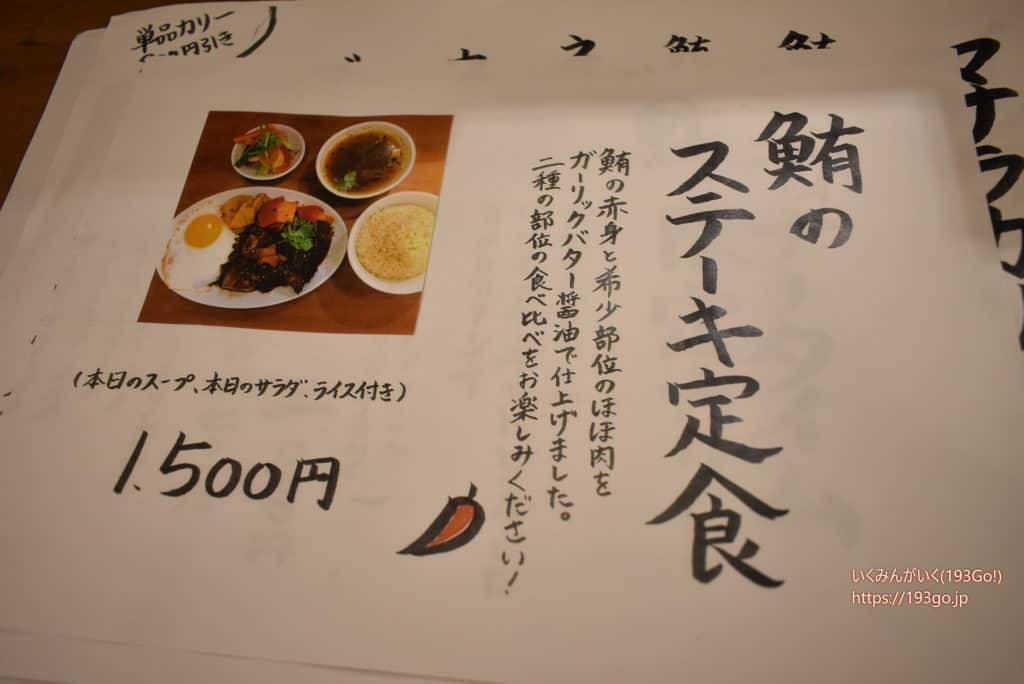 鮪の
ステーキ定食
鮪の赤身と希少部位のほほ肉を
ガーリックバター醤油で仕上げました。
二種の部位の食べ比べをお楽しみください！
(本日のスープ、本日のサラダ、ライス付き)
1.500円
単品カリー
円引き
いくみんがいく(193Go!)
https://193go.jp